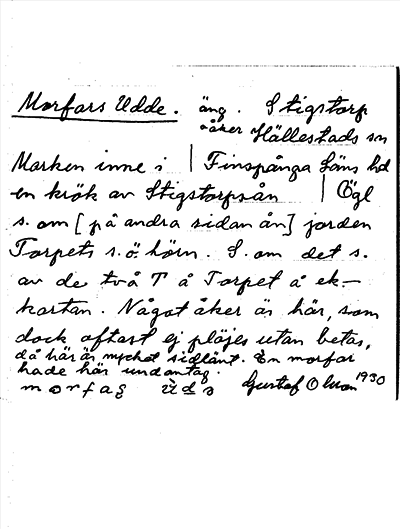 Morfars Udde. äng. Stigstorp
o åker Hällestads sn
Marken inne i Finspånga läns hd
en krök av Stigstorpsån Ögl
s. om [på andra sidan ån] jorden
Torpets s.ö. hörn. S. om det s.
av de två T å Torpet å ek-
kartan. Något åker är här, som
dock oftast ej plöjes utan betas,
då här är mycket sidlänt. En morfar
hade här undantag.
morfas uds Gustaf Olson 1930